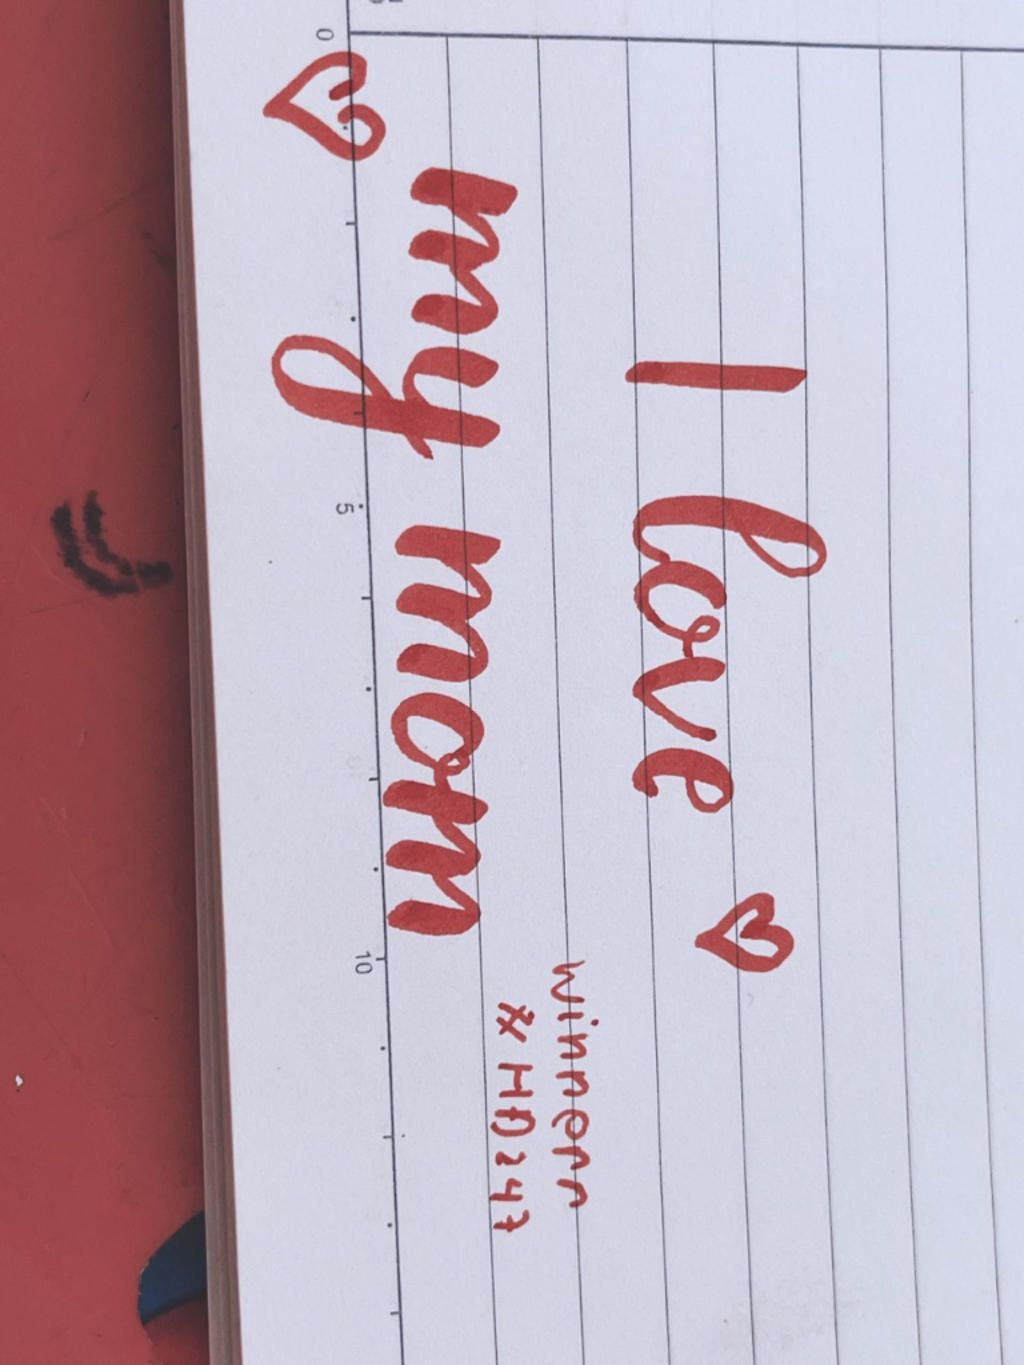 I love
my mom
winnerr
x HD247
0
5
10